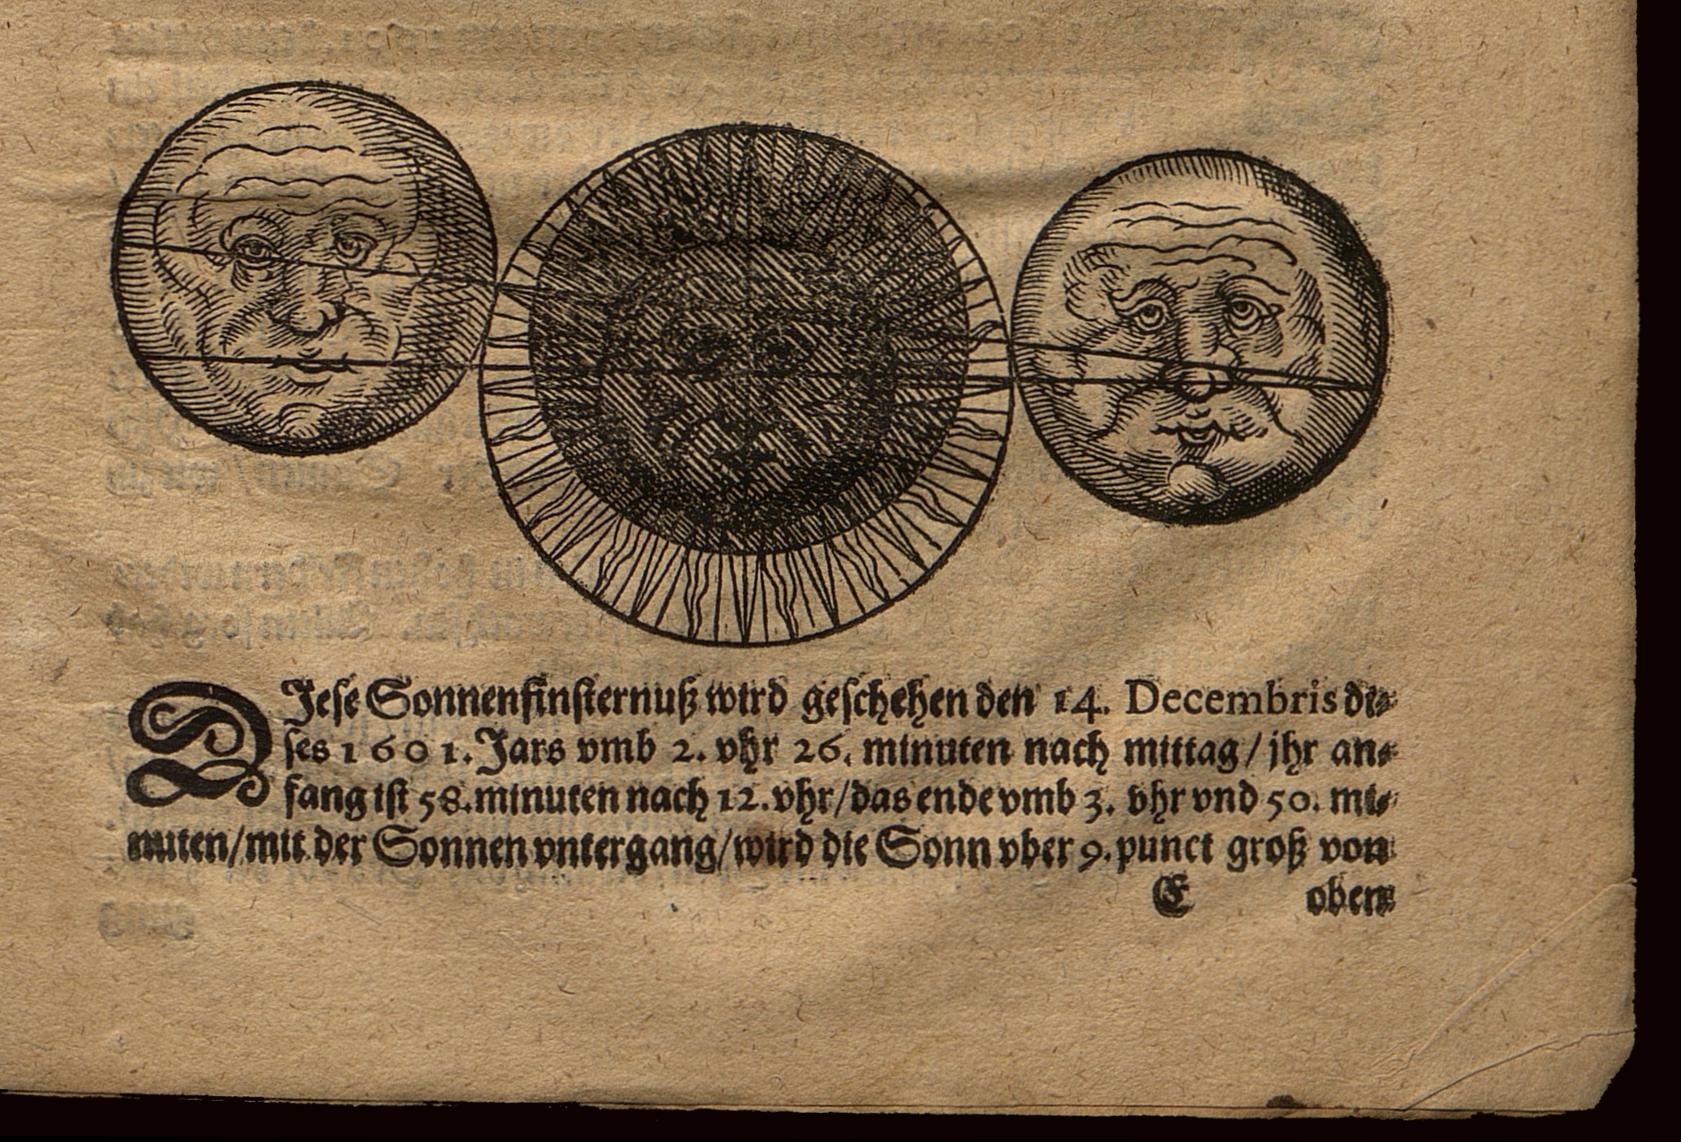 DIese Sonnenfinsternuß wird geschehen den 14. Decembris die-
ses 1601. Jars vmb 2. vhr 26. minuten nach mittag/ jhr an-
fang ist 58. minuten nach 12. vhr/ das ende vmb 3. vhr vnd 50. mi-
nuten/ mit der Sonnen vntergang/ wird die Sonn vber 9. punct groß von
E oben